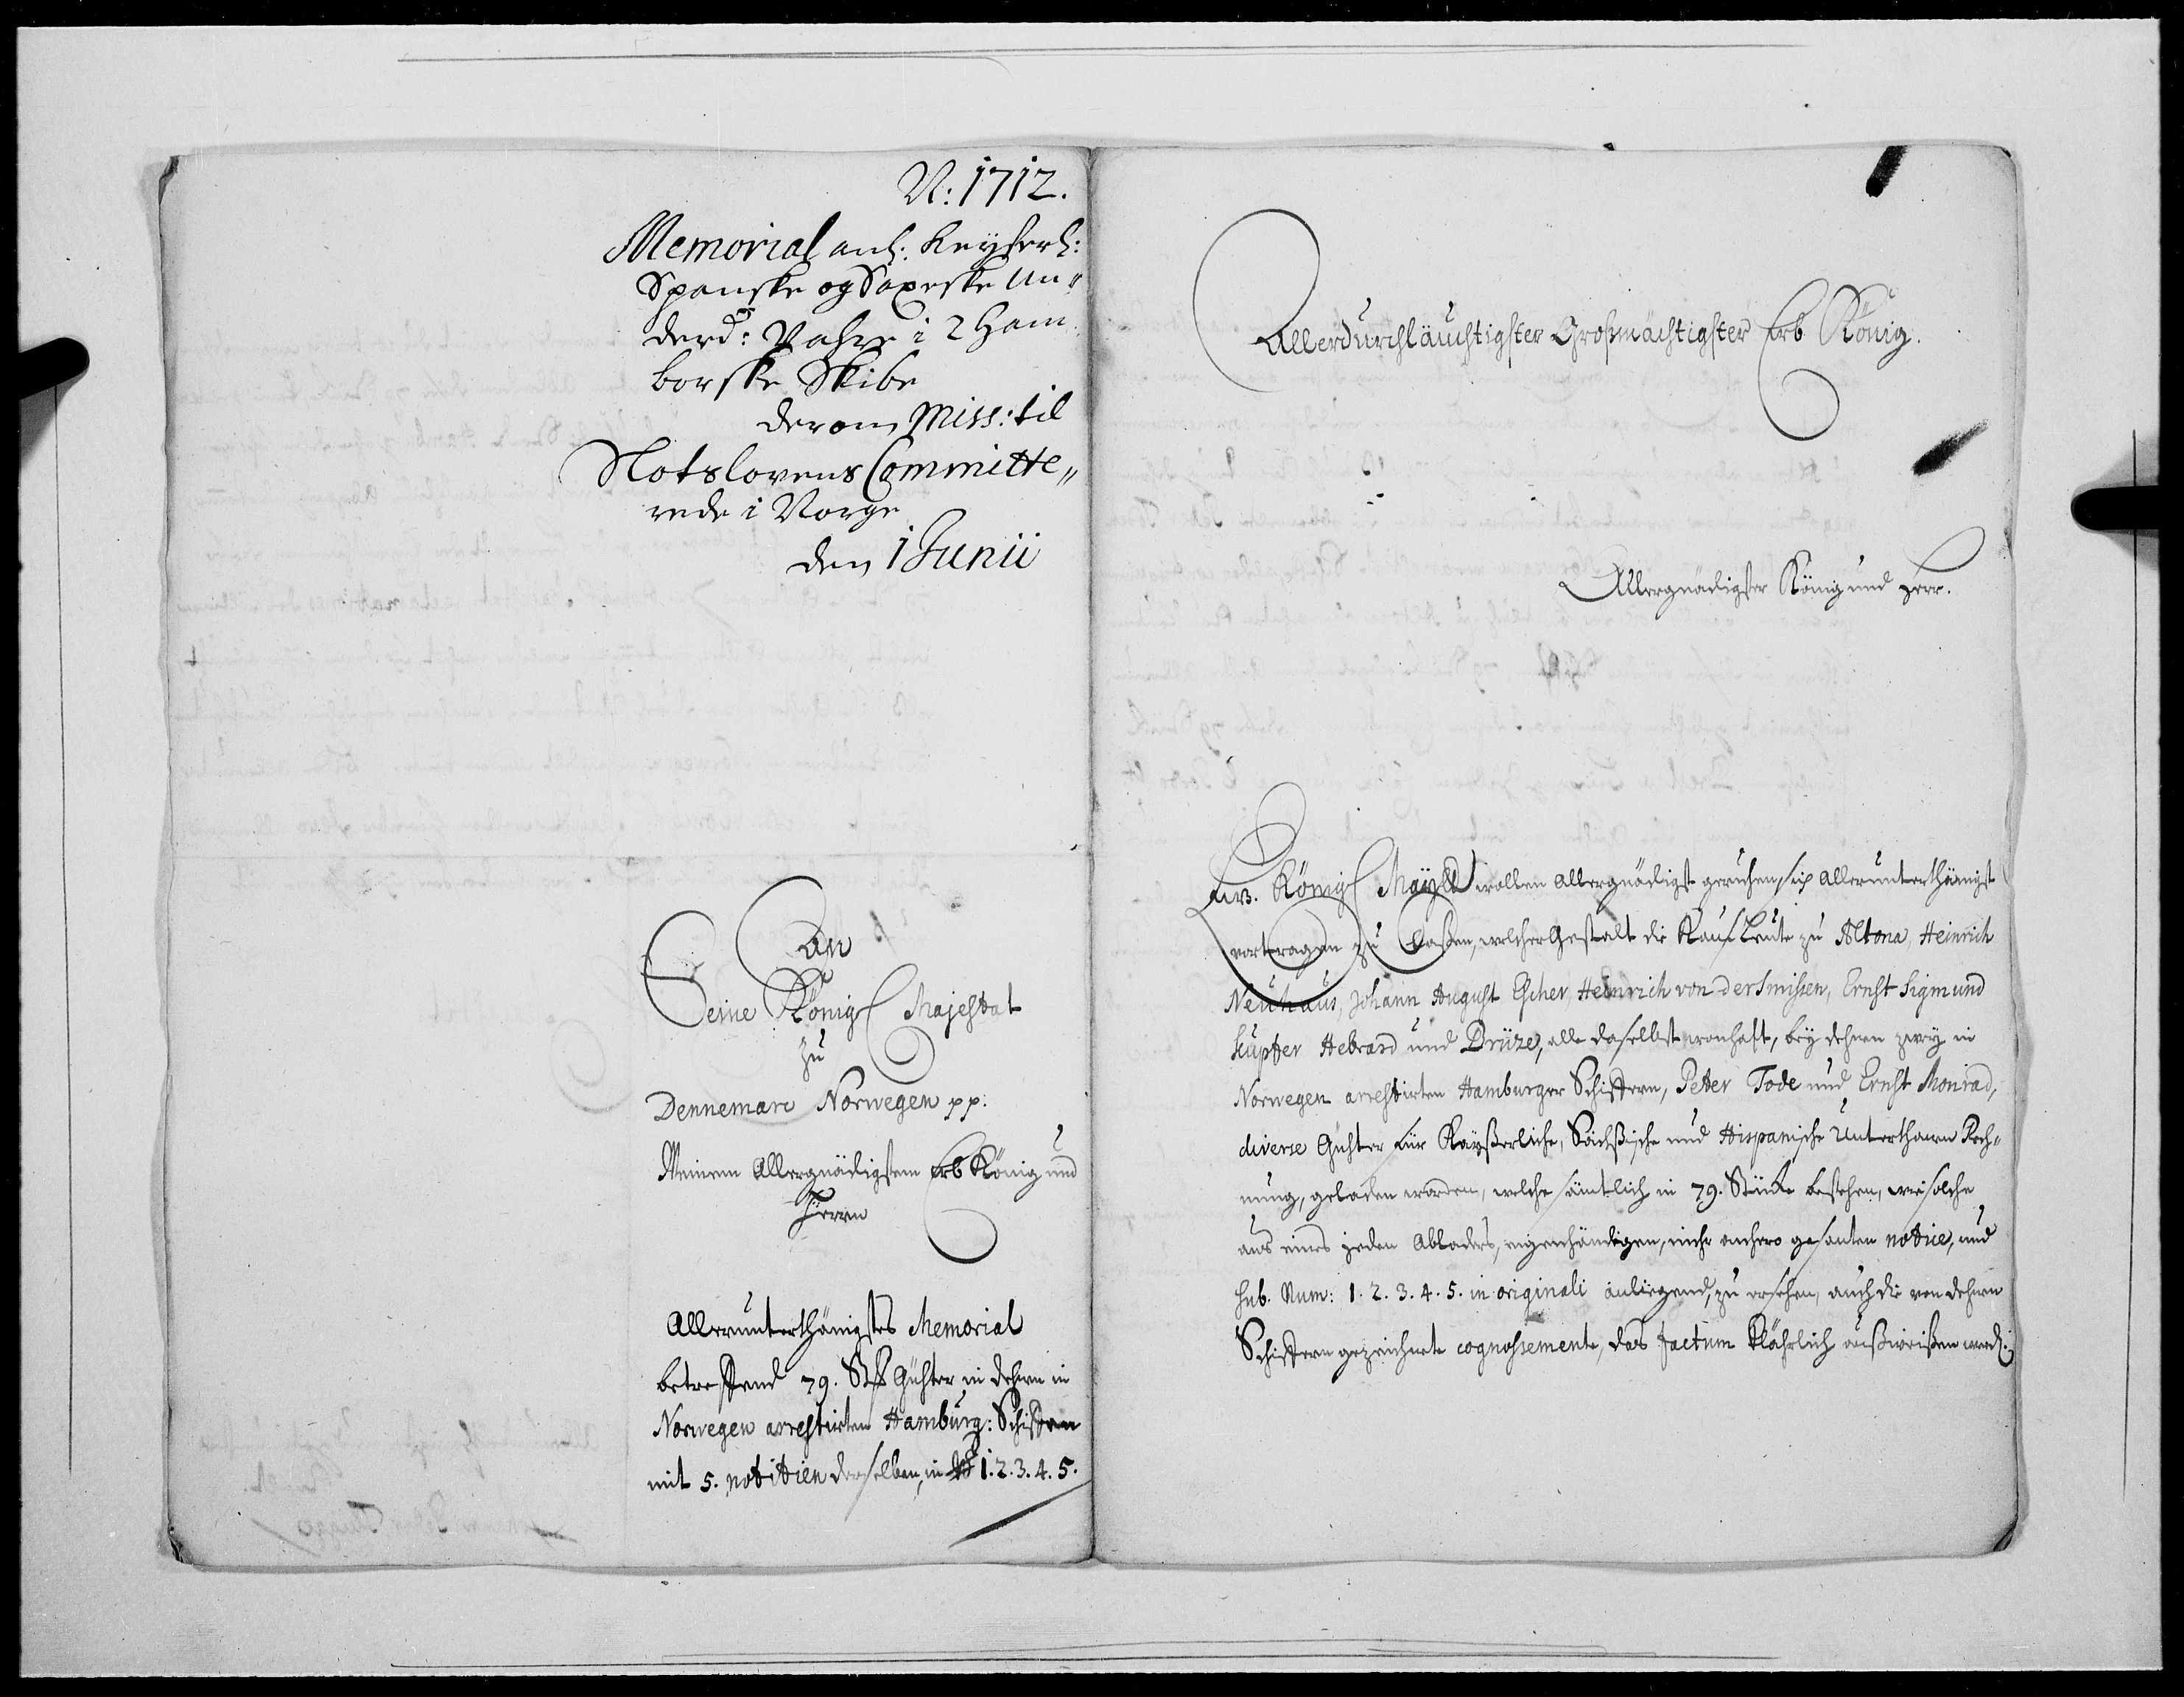 N: 1712.
Memorial anl: Keyserl:
Spanske og Saxeske Un=
derd: Vahre i 2 Ham
borske Skibe
derom Miss: til
Slotslovens Committe=
rede i Norge
den 1 Junii
An
Seine Königl Majestat
zu
Dennemarc Norwegen pp.
Meinem Allergnädigstem Erb König und
Herrn
Allerunterthänigstes Memorial
betreffend 79. Stk Gühter in dehnen in
Norwegen arrestirten Hamburg: Schiffen
mit 5. notitien derselben, in № 1. 2. 3. 4. 5.
Allerdurchläuchtigster Großmächtigster Erb König.
Allergnädigster König und Herr.
Ew. Königl Mayttt wollen Allergnädigst geruhen, sich Allerunterthänigst
vortragen zu Laßen, welcher Gestalt die Kauf Leute zu Altona, Heinrich
Neuhaus, Johann August Escher, Heinrich von der Smissen, Ernst Sigmund
Küpfer Hebrard und Drüze, alle daselbst wonhaft, bey dehnen zwey in
Norwegen arrestirten Hamburger Schiffern, Peter Tode und Ernst Monrad,
diverse Gühter für Kayßerliche, Sächßische und Hispanische Unterthanen Rech=
nung, geladen worden, welche sämtlich in 79. Stücke bestehen, wie solche
aus eines jeden Abladers, eigenhändigen, mihr anhero gesanten notice, und
sub. Num: 1. 2. 3. 4. 5. in originali anliegend, zu ersehen, auch die von dehnen
Schiffern gezeichnete cognossemente, das factum klährlich außweißen werd: